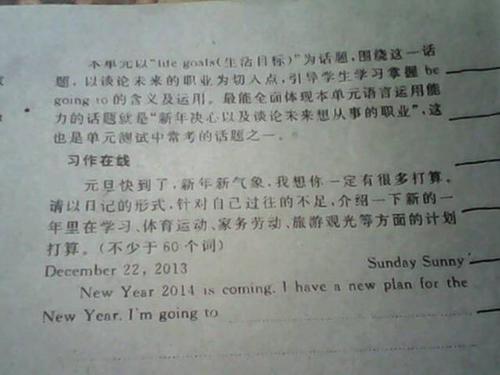 本单元以“life goals(生活目标)”为话题,围绕这一话
题,以谈论未来的职业为切入点,引导学生学习掌握 be
going to 的含义及运用。最能全面体现本单元语言运用能
力的话题就是“新年决心以及谈论未来想从事的职业”,这
也是单元测试中常考的话题之一。
习作在线
元旦快到了,新年新气象,我想你一定有很多打算。
请以日记的形式,针对自己过往的不足,介绍一下新的一
年里在学习、体育运动、家务劳动、旅游观光等方面的计划
打算。(不少于 60 个词)
December 22, 2013 Sunday Sunny
New Year 2014 is coming. I have a new plan for the
New Year. I'm going to